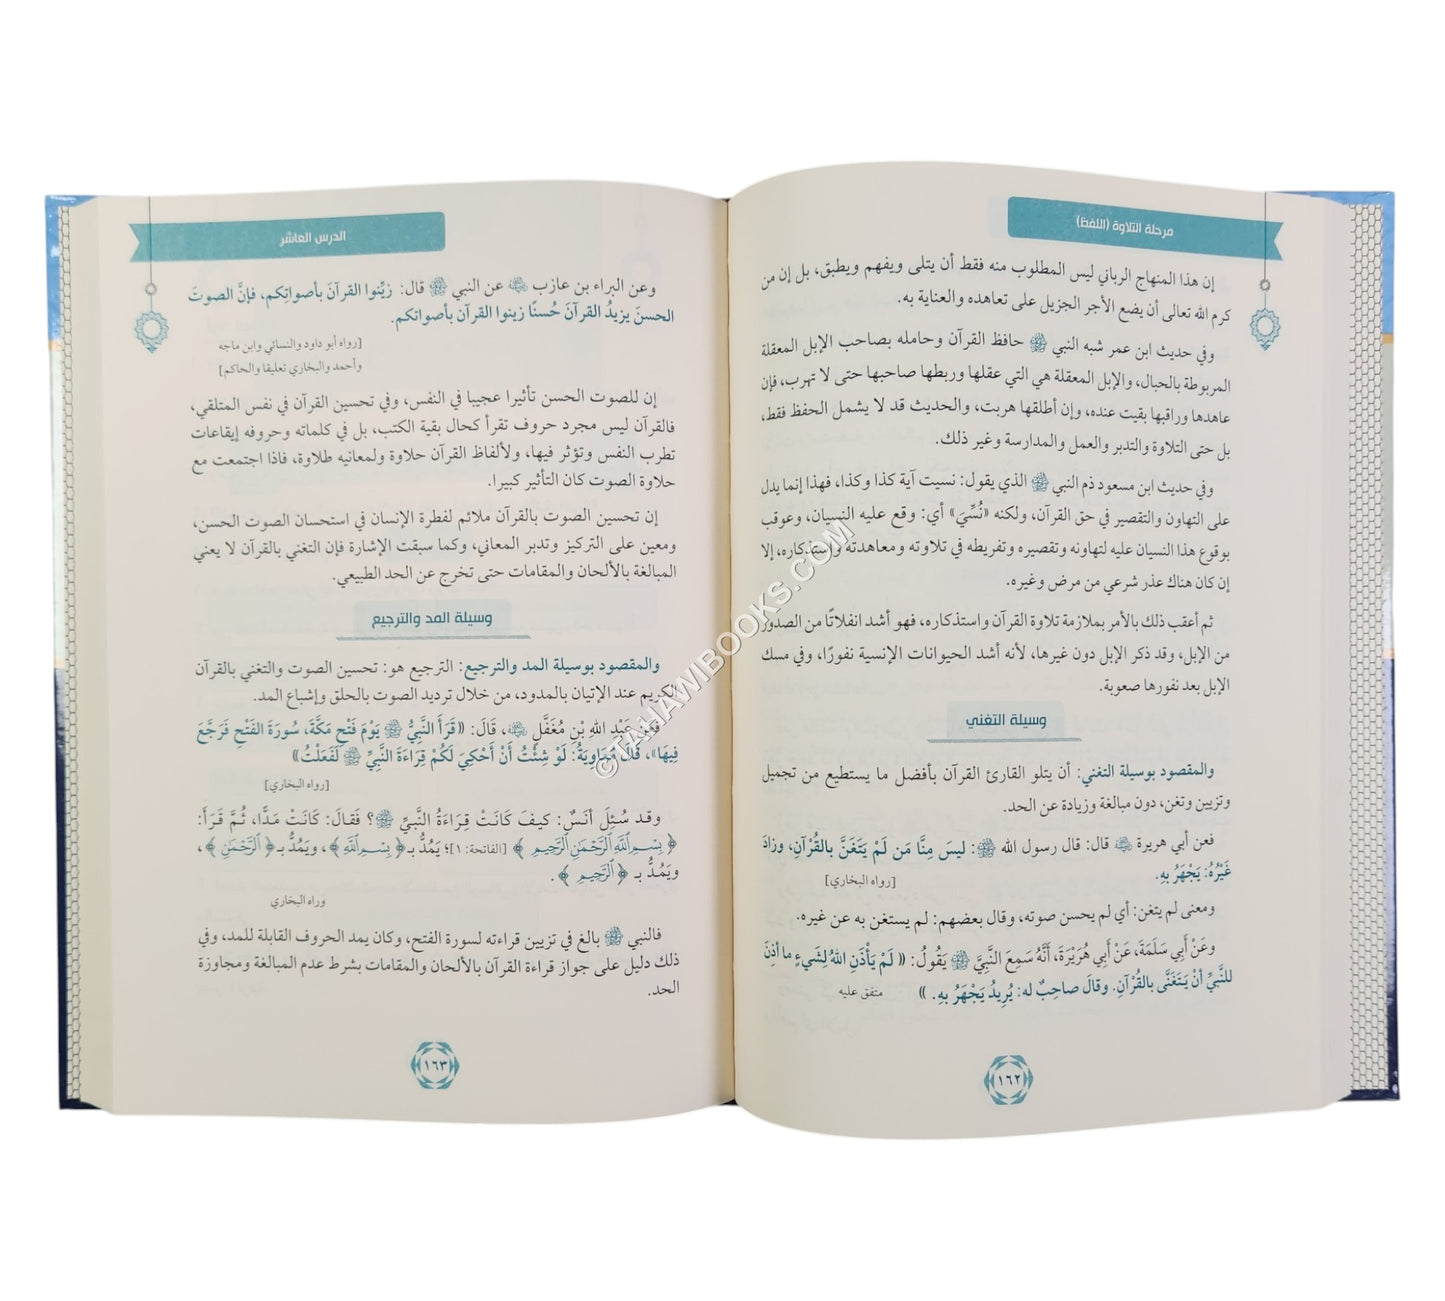 مرحلة التلاوة (اللفظ)
إن هذا المنهاج الرباني ليس المطلوب منه فقط أن يتلى ويفهم ويطبق، بل إن من
كرم الله تعالى أن يضع الأجر الجزيل على تعاهده والعناية به.
وفي حديث ابن عمر شبه النبي ﷺ حافظ القرآن وحامله بصاحب الإبل المعقلة
المربوطة بالحبال، والإبل المعقلة هي التي عقلها وربطها صاحبها حتى لا تهرب، فإن
عاهدها وراقبها بقيت عنده، وإن أطلقها هربت، والحديث قد لا يشمل الحفظ فقط،
بل حتى التلاوة والتدبر والعمل والمدارسة وغير ذلك.
وفي حديث ابن مسعود ذم النبي ﷺ الذي يقول: نسيت آية كذا وكذا، فهذا إنما يدل
على التهاون والتقصير في حق القرآن، ولكنه «نُسِّيَ» أي: وقع عليه النسيان، وعوقب
بوقوع هذا النسيان عليه لتهاونه وتقصيره وتفريطه في تلاوته ومعاهدته واستذكاره، إلا
إن كان هناك عذر شرعي من مرض وغيره.
ثم أعقب ذلك بالأمر بملازمة تلاوة القرآن واستذكاره، فهو أشد انفلاتًا من الصدور
من الإبل، وقد ذكر الإبل دون غيرها، لأنه أشد الحيوانات الإنسية نفورًا، وفي مسك
الإبل بعد نفورها صعوبة.
وسيلة التغني
والمقصود بوسيلة التغني: أن يتلو القارئ القرآن بأفضل ما يستطيع من تجميل
وتزيين وتغن، دون مبالغة وزيادة عن الحد.
فعن أبي هريرة ﵁ قال: قال رسول الله ﷺ: ليسَ مِنَّا مَن لَمْ يَتَغَنَّ بالقُرْآنِ، وزادَ
غَيْرُهُ: يَجْهَرُ بهِ.
[رواه البخاري]
ومعنى لم يتغن: أي لم يحسن صوته، وقال بعضهم: لم يستغن به عن غيره.
وعَنْ أَبِي سَلَمَةَ، عَنْ أَبِي هُرَيْرَةَ، أَنَّهُ سَمِعَ النَّبِيَّ ﷺ يَقُولُ: « لَمْ يَأْذَنِ اللهُ لِشَيءٍ ما أذِنَ
للنَّبِيِّ أنْ يَتَغَنَّى بالقُرْآنِ. وقالَ صاحِبٌ له: يُرِيدُ يَجْهَرُ بهِ. » متفق عليه
١٦٢
الدرس العاشر
وعن البراء بن عازب ﵁ عن النبي ﷺ قال: زيِّنوا القرآنَ بأصواتِكم، فإنَّ الصوتَ
الحسنَ يزيدُ القرآنَ حُسنًا زينوا القرآن بأصواتكم.
[رواه أبو داود والنسائي وابن ماجه
وأحمد والبخاري تعليقا والحاكم]
إن للصوت الحسن تأثيرا عجيبا في النفس، وفي تحسين القرآن في نفس المتلقي،
فالقرآن ليس مجرد حروف تقرأ كحال بقية الكتب، بل في كلماته وحروفه إيقاعات
تطرب النفس وتؤثر فيها، ولألفاظ القرآن حلاوة ولمعانيه طلاوة، فاذا اجتمعت مع
حلاوة الصوت كان التأثير كبيرا.
إن تحسين الصوت بالقرآن ملائم لفطرة الإنسان في استحسان الصوت الحسن،
ومعين على التركيز وتدبر المعاني، وكما سبقت الإشارة فإن التغني بالقرآن لا يعني
المبالغة بالألحان والمقامات حتى تخرج عن الحد الطبيعي.
وسيلة المد والترجيع
والمقصود بوسيلة المد والترجيع: الترجيع هو: تحسين الصوت والتغني بالقرآن
الكريم عند الإتيان بالمدود، من خلال ترديد الصوت بالحلق وإشباع المد.
فعن عَبْدِ اللهِ بْنِ مُغَفَّلٍ ﵁، قَالَ: «قَرَأَ النَّبِيُّ ﷺ يَوْمَ فَتْحِ مَكَّةَ، سُورَةَ الفَتْحِ فَرَجَّعَ
فِيهَا»، قَالَ مُعَاوِيَةُ: لَوْ شِئْتُ أَنْ أَحْكِيَ لَكُمْ قِرَاءَةَ النَّبِيِّ ﷺ لَفَعَلْتُ»
[رواه البخاري]
وقد سُئِلَ أنَسٌ: كيفَ كَانَتْ قِرَاءَةُ النَّبيِّ ﷺ؟ فَقالَ: كَانَتْ مَدًّا، ثُمَّ قَرَأَ:
﴿ بِسْمِ ٱللَّهِ ٱلرَّحْمَٰنِ ٱلرَّحِيمِ ﴾ [الفاتحة: ١]؛ يَمُدُّ بـ﴿ بِسْمِ ٱللَّهِ ﴾، ويَمُدُّ بـ﴿ ٱلرَّحْمَٰنِ ﴾،
ويَمُدُّ بـ ﴿ ٱلرَّحِيمِ ﴾.
وراه البخاري
فالنبي ﷺ بالغ في تزيين قراءته لسورة الفتح، وكان يمد الحروف القابلة للمد، وفي
ذلك دليل على جواز قراءة القرآن بالألحان والمقامات بشرط عدم المبالغة ومجاوزة
الحد.
١٦٣
©TAHAWIBOOKS.COM